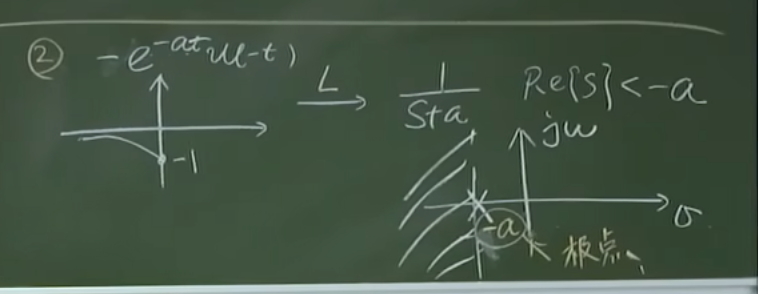 ② -e^{-at}u(-t) L→ 1/(s+a) Re{s}<-a
-1
jω
σ
-a
极点